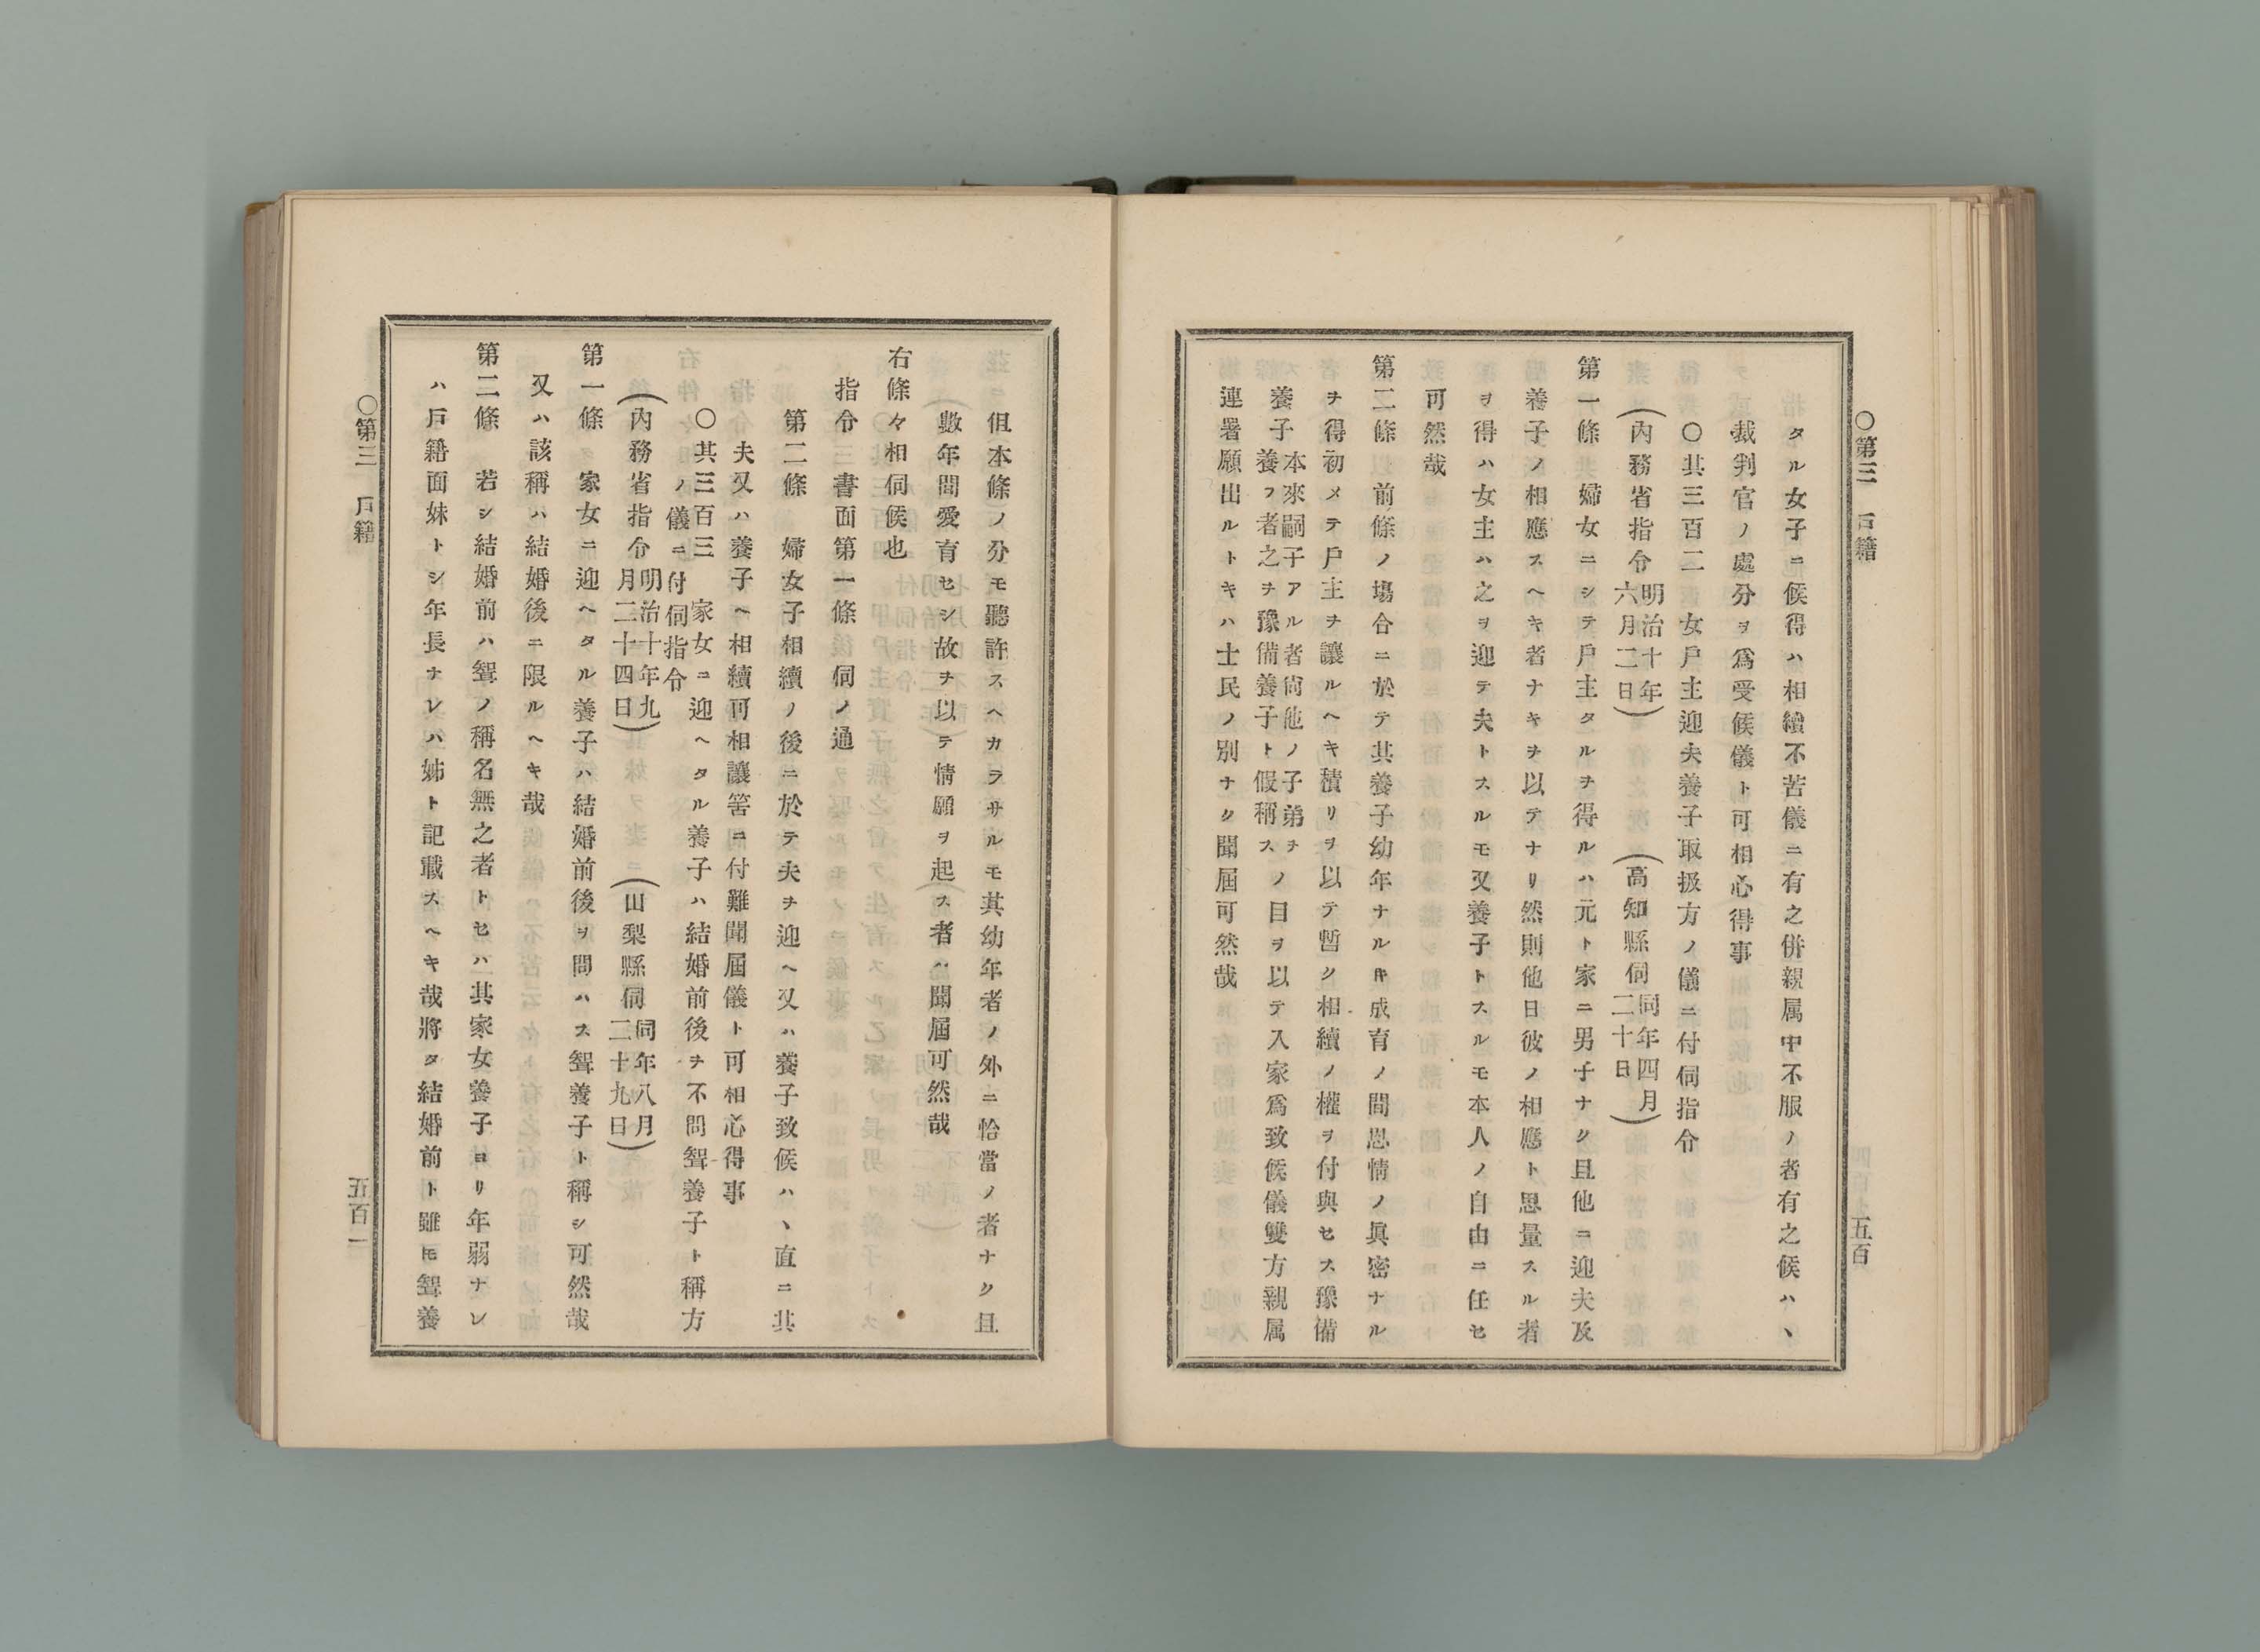 〇第三　戸籍　五百
タル女子ニ候得ハ相續不苦儀ニ有之併親属中不服ノ者有之候ハヽ
裁判官ノ處分ヲ爲受候儀ト可相心得事
〇其三百二　女戸主迎夫養子取扱方ノ儀ニ付伺指令
（内務省指令明治十年六月二日）（高知縣伺同年四月二十日）
第一條　婦女ニシテ戸主タルヲ得ルハ元ト家ニ男子ナク且他ニ迎夫及
養子ノ相應スヘキ者ナキヲ以テナリ然則他日彼ノ相應ト思量スル者
ヲ得ハ女主ハ之ヲ迎テ夫トスルモ又養子トスルモ本人ノ自由ニ任セ
可然哉
第二條　前條ノ塲合ニ於テ其養子幼年ナルキ成育ノ間恩情ノ眞密ナル
ヲ得初メテ戸主ヲ讓ルヘキ積リヲ以テ暫ク相續ノ權ヲ付與セス豫備
養子本來嗣子アル者尙他ノ子弟ヲ養フ者之ヲ豫備養子ト假稱スノ目ヲ以テ入家爲致候儀雙方親属
連署願出ルトキハ士民ノ別ナク聞屆可然哉
但本條ノ分モ聽許スヘカラサルモ其幼年者ノ外ニ恰當ノ者ナク且
數年間愛育セシ故ヲ以テ情願ヲ起ス者ハ聞屆可然哉
右條々相伺候也
指令　書面第一條　伺ノ通
第二條　婦女子相續ノ後ニ於テ夫ヲ迎ヘ又ハ養子致候ハヽ直ニ其
夫又ハ養子ヘ相續可相讓筈ニ付難聞屆儀ト可相心得事
〇其三百三　家女ニ迎ヘタル養子ハ結婚前後ヲ不問聟養子ト稱方
ノ儀ニ付伺指令
（内務省指令明治十年九月二十四日）（山梨縣伺同年八月二十九日）
第一條　家女ニ迎ヘタル養子ハ結婚前後ヲ問ハス聟養子ト稱シ可然哉
又ハ該稱ハ結婚後ニ限ルヘキ哉
第二條　若シ結婚前ハ聟ノ稱名無之者トセハ其家女養子ヨリ年弱ナレ
ハ戸籍面妹トシ年長ナレハ姊ト記載スヘキ哉將タ結婚前ト雖𪜈聟養
〇第三　戸籍　五百一